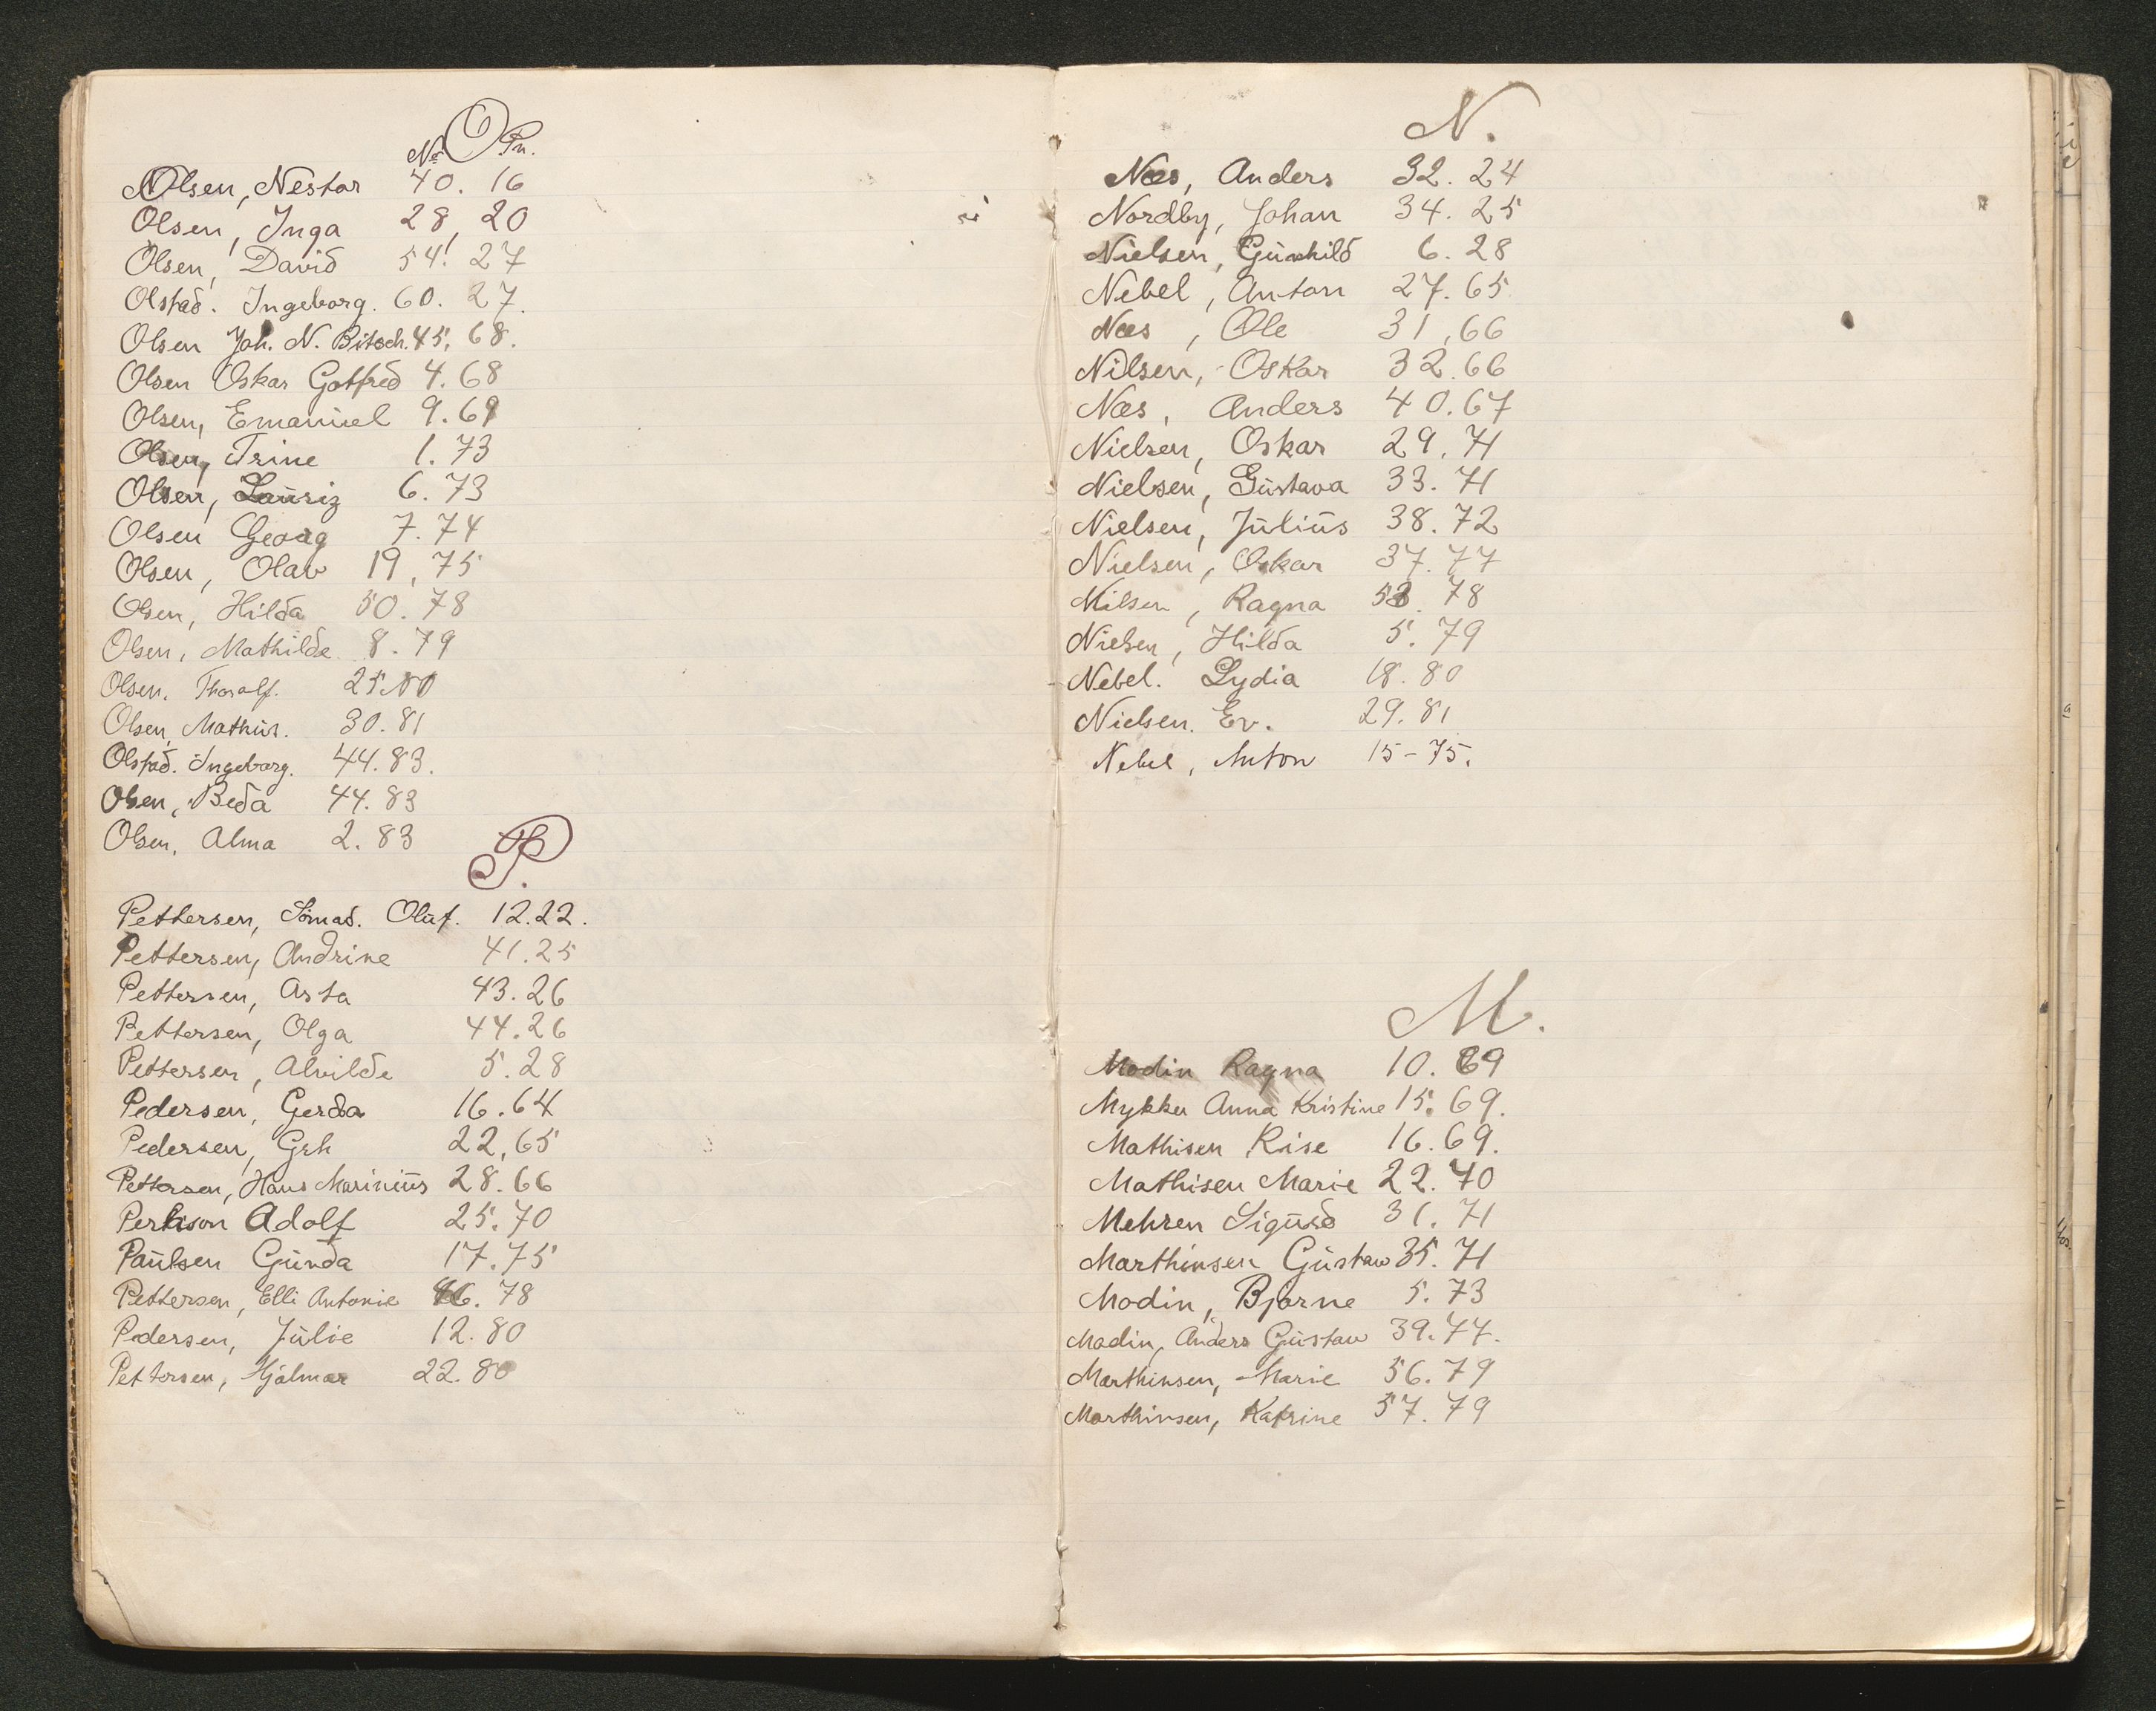 O
No Pn.
Olsen, Nestor 40. 16
Olsen, Inga 28, 20
Olsen, David 54. 27
Olstad. Ingeborg. 60. 27.
Olsen Joh. N. Bitsch. 45. 68.
Olsen Oskar Gotfred 4. 68
Olsen, Emanuel 9. 69
Olsen, Trine 1. 73
Olsen, Lauriz 6. 73
Olsen Georg 7. 74
Olsen, Olav 19, 75
Olsen, Hilda 50. 78
Olsen, Mathilde 8. 79
Olsen. Thoralf. 25. 80
Olsen, Mathus. 30. 81
Olstad. Ingeborg. 44. 83.
Olsen, Beda 44. 83
Olsen, Alma 2. 83
P.
Pettersen, Sömad. Oluf. 12. 22.
Pettersen, Andrine 41. 25
Pettersen, Asta 43. 26
Pettersen, Olga 44. 26
Pettersen, Alvilde 5. 28
Pedersen, Gerda 16. 64
Pedersen, Grh 22, 65
Pettersen, Hans Marinius 28. 66
Perhson Adolf 25. 70
Paulsen Gunda 17. 75
Pettersen, Elli Antonie 46. 78
Pedersen, Julie 12. 80
Pettersen, Hjalmar 22. 80
N.
Næs, Anders 32. 24
Nordby, Johan 34. 25
Nielsen, Gunhild 6. 28
Nebel, Anton 27. 65
Næs, Ole 31, 66
Nilsen, Oskar 32. 66
Næs, Anders 40. 67
Nielsen, Oskar 29. 71
Nielsen, Gustava 33. 71
Nielsen, Julius 38. 72
Nielsen, Oskar 37. 77
Nilsen, Ragna 53. 78
Nielsen, Hilda 5. 79
Nebel. Lydia 18. 80
Nielsen. Ev. 29. 81
Nebel, Anton 15-75.
M.
Modin Ragna 10. 69
Mykker Anna Kristine 15. 69.
Mathisen Rise 16. 69.
Mathisen Marie 22. 70
Mehren Sigurd 31. 71
Marthinsen Gustaw 35. 71
Modin, Bjarne 5. 73
Madin, Anders Gustaw 39. 77.
Marthinsen, Marie 56. 79
Marthinsen, Katrine 57. 79